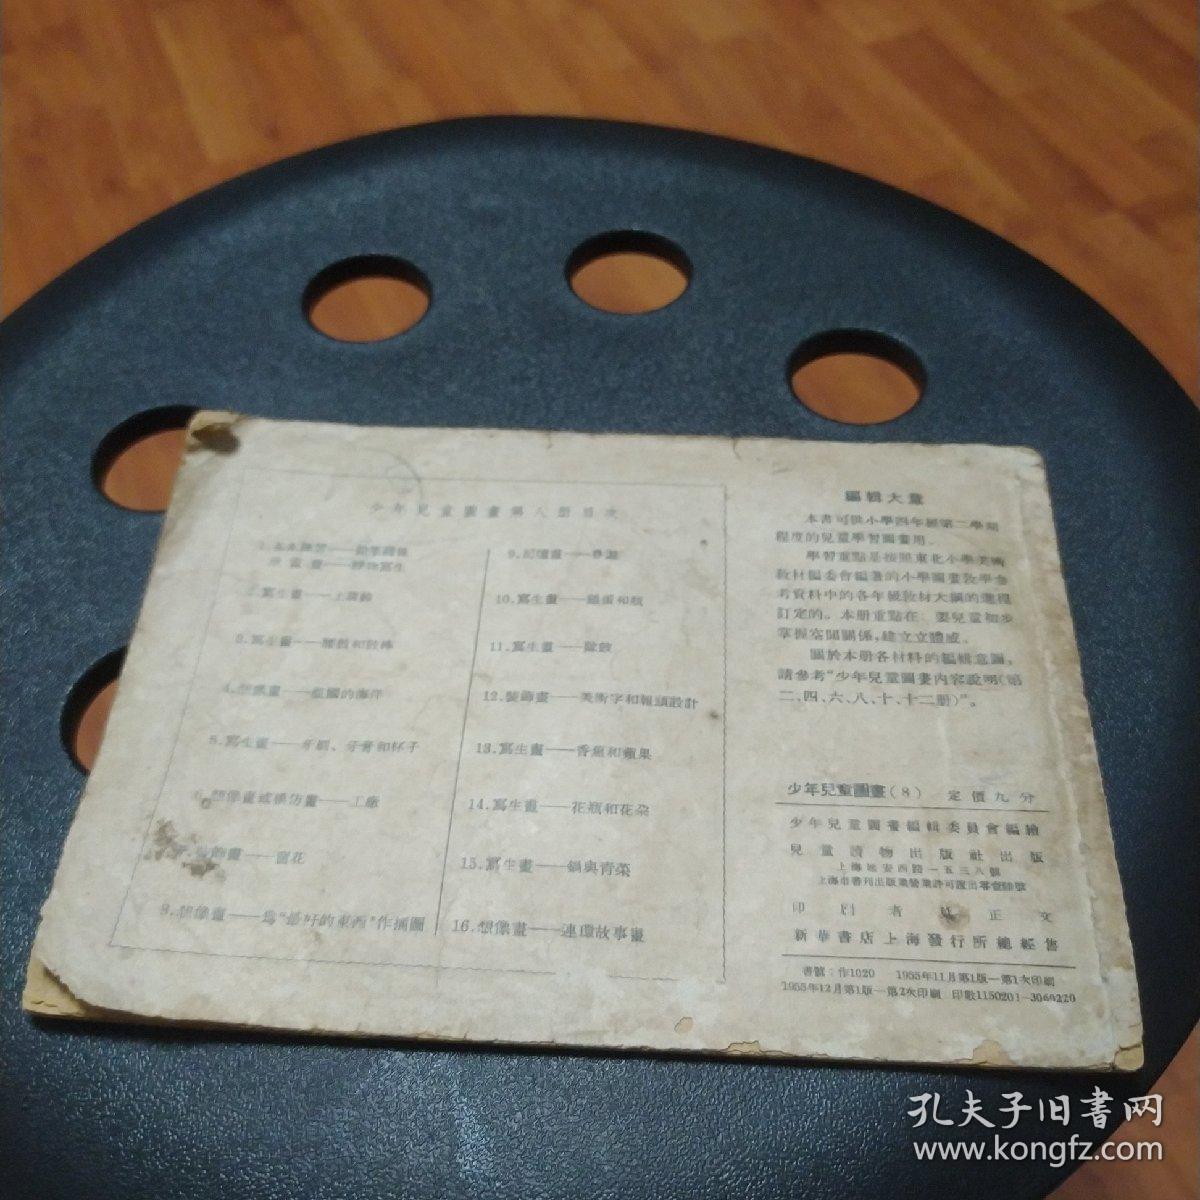 少年兒童圖畫第八册目次
寫生畫——靜物寫生
3.寫生畫——腰鼓和鼓棒
4.想像畫——祖國的海洋
5.寫生畫——牙刷、牙膏和杯子
6.想像畫或模仿畫——工廠
窗花
8.想像畫——爲“最好的東西”作插圖
9.記憶畫——春遊
10.寫生畫——雞蛋和瓶
11.寫生畫——隊鼓
12.裝飾畫——美術字和報頭設計
13.寫生畫——香蕉和蘋果
14.寫生畫——花瓶和花朵
15.寫生畫——鍋與青菜
16.想像畫——連環故事畫
編輯大意
本書可供小學四年級第二學期
程度的兒童學習圖畫用。
學習重點是按照東北小學美術
教材編委會編著的小學圖畫教學參
考資料中的各年級教材大綱的進程
訂定的。本册重點在：要兒童初步
掌握空間關係，建立立體感。
關於本册各材料的編輯意圖，
請參考“少年兒童圖畫內容說明（第
二、四、六、八、十、十二册）”。
少年兒童圖畫（8） 定價九分
少年兒童圖畫編輯委員會編繪
兒童讀物出版社出版
上海延安西路一五三八號
上海市書刊出版業營業許可證出零壹肆號
印刷者 正文
新華書店上海發行所總經售
書號：作1020 1955年11月第1版—第1次印刷
1955年12月第1版—第2次印刷 印數1150201—3060220
孔夫子旧书网
www.kongfz.com